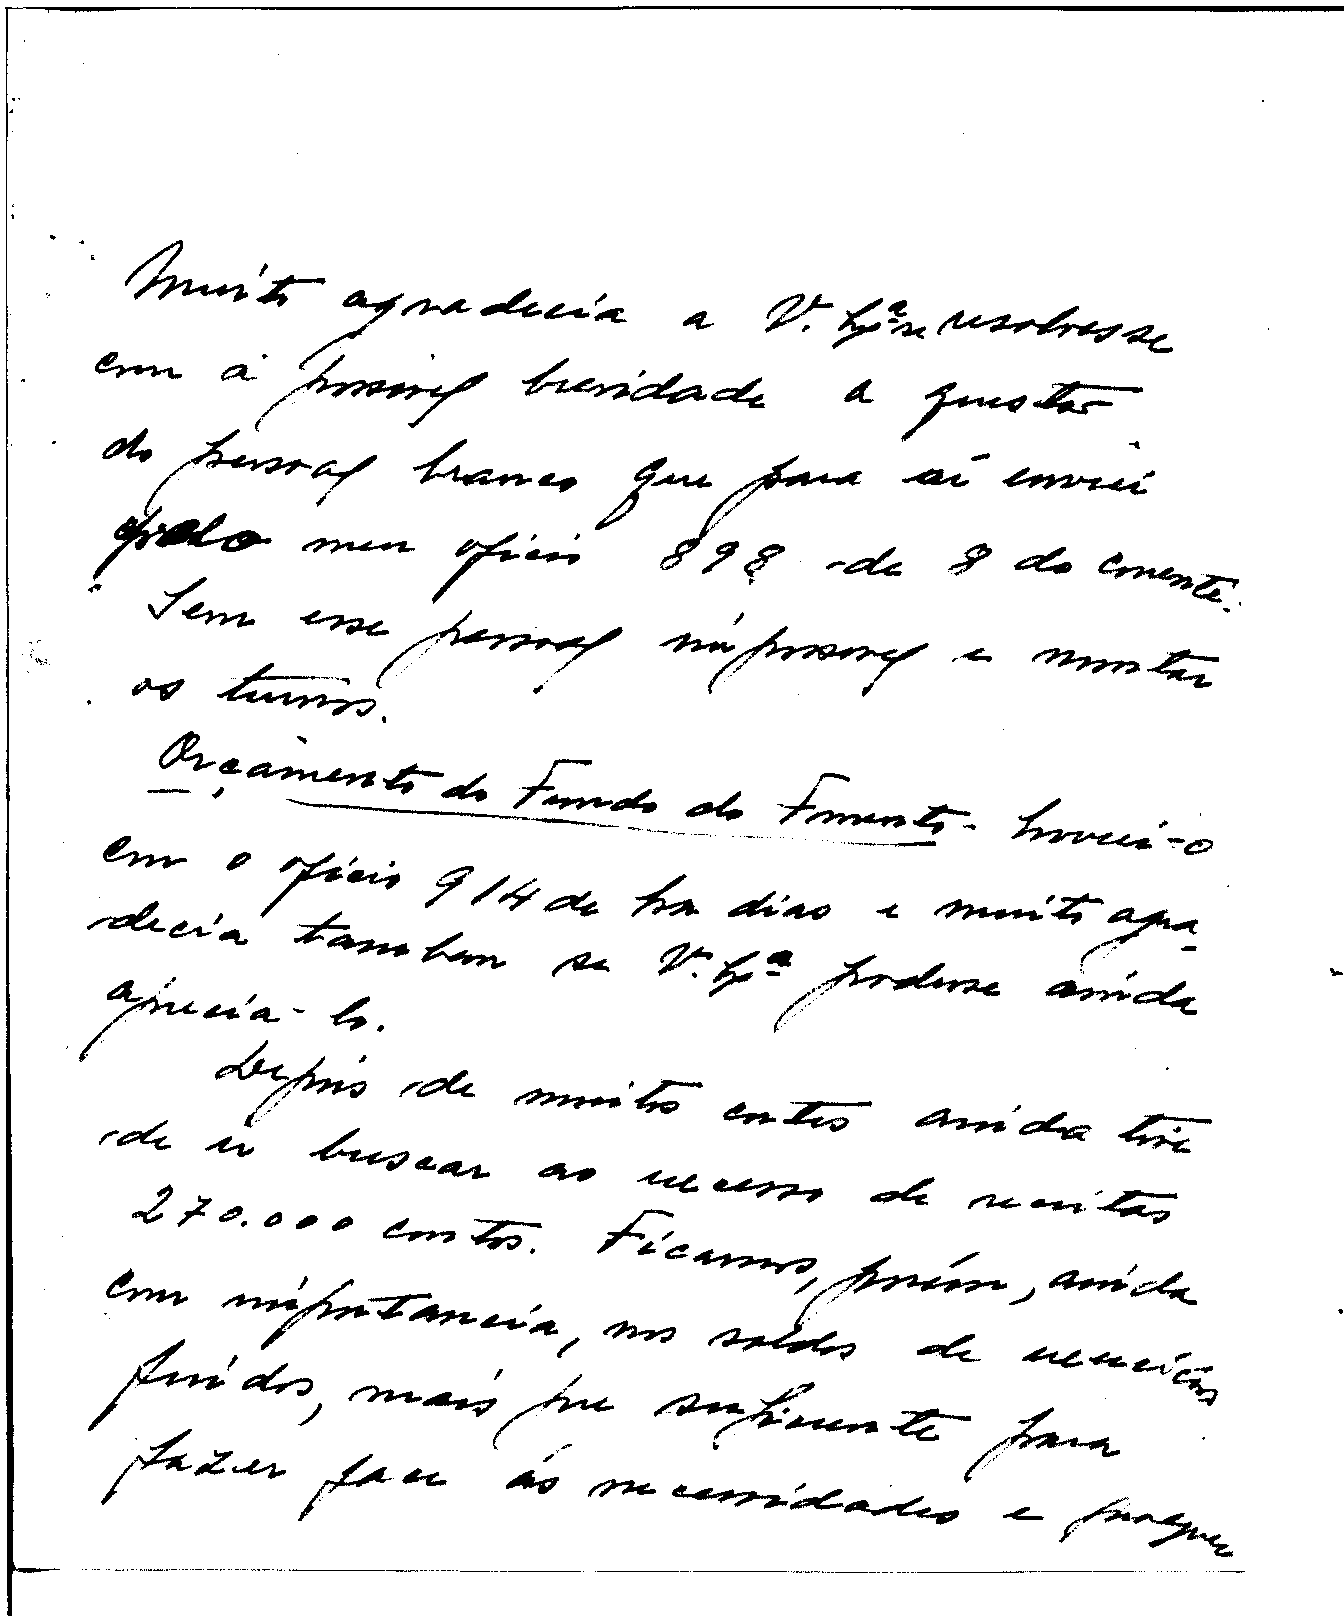 Muito agradecia a V. Exª se resolvesse
com a possivel brevidade a questão
do pessoal branco que para aí enviei
pelo meu oficio 898 de 8 do corrente.
Sem esse pessoal impossivel e montar
os turnos.
Orçamento do Fundo do Fomento - Enviei-o
com o oficio 914 de ha dias e muito agra-
decia tambem se V. Exª podesse ainda
aprecia-lo.
Depois de muitos cortes ainda tive
de ir buscar ao excesso de receitas
270.000 contos. Ficamos, porém, ainda
com importancia, nos saldos de exercicios
findos, mais que suficiente para
fazer face ás necessidades e